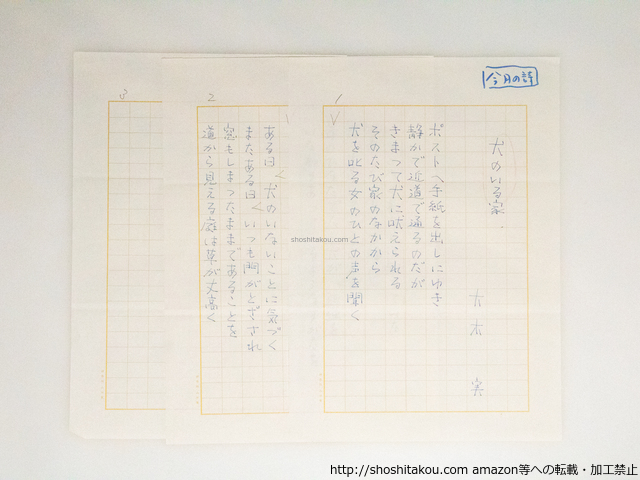 今月の詩
1
犬のいる家
大木 実
ポストへ手紙を出しにゆき
静かで近道で通るのだが
きまって犬に吠えられる
そのたび家のなかから
犬を叱る女のひとの声を聞く
2
ある日 犬のいないことに気づく
またある日 いつも門がとざされ
窓もしまったままであることを
道から見える庭は草が丈高く
3
shoshitakou.com
http://shoshitakou.com amazon等への転載・加工禁止